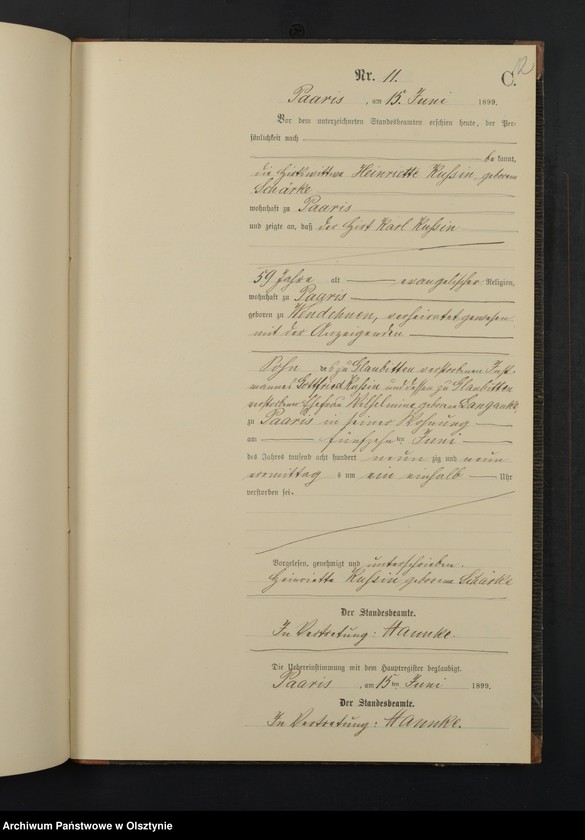 12
Nr. 11.
C.
Paaris, am 15. Juni 1899.
Vor dem unterzeichneten Standesbeamten erschien heute, der Per-
sönlichkeit nach
bekannt,
die Hirtswittwe Heinriette Kussin geborene
Schärke
wohnhaft zu Paaris
und zeigte an, daß der Hirt Karl Kussin
59 Jahre alt evangelischer Religion,
wohnhaft zu Paaris
geboren zu Wendehnen, verheiratet gewesen
mit der Anzeigenden
Sohn des zu Glaubitten verstorbenen Inst-
mannes Gottfried Kussin und dessen zu Glaubitten
verstorbener Ehefrau Wilhelmine geborene Langanke
zu Paaris in seiner Wohnung
am fünfzehnten Juni
des Jahres tausend acht hundert neun zig und neun
vormittag s um ein einhalb Uhr
verstorben sei.
Vorgelesen, genehmigt und unterschrieben.
Heinriette Kussin geborene Schärke
Der Standesbeamte.
In Vertretung: Hannke.
Die Uebereinstimmung mit dem Hauptregister beglaubigt.
Paaris, am 15ten Juni 1899.
Der Standesbeamte.
In Vertretung: Hannke.
Archiwum Państwowe w Olsztynie